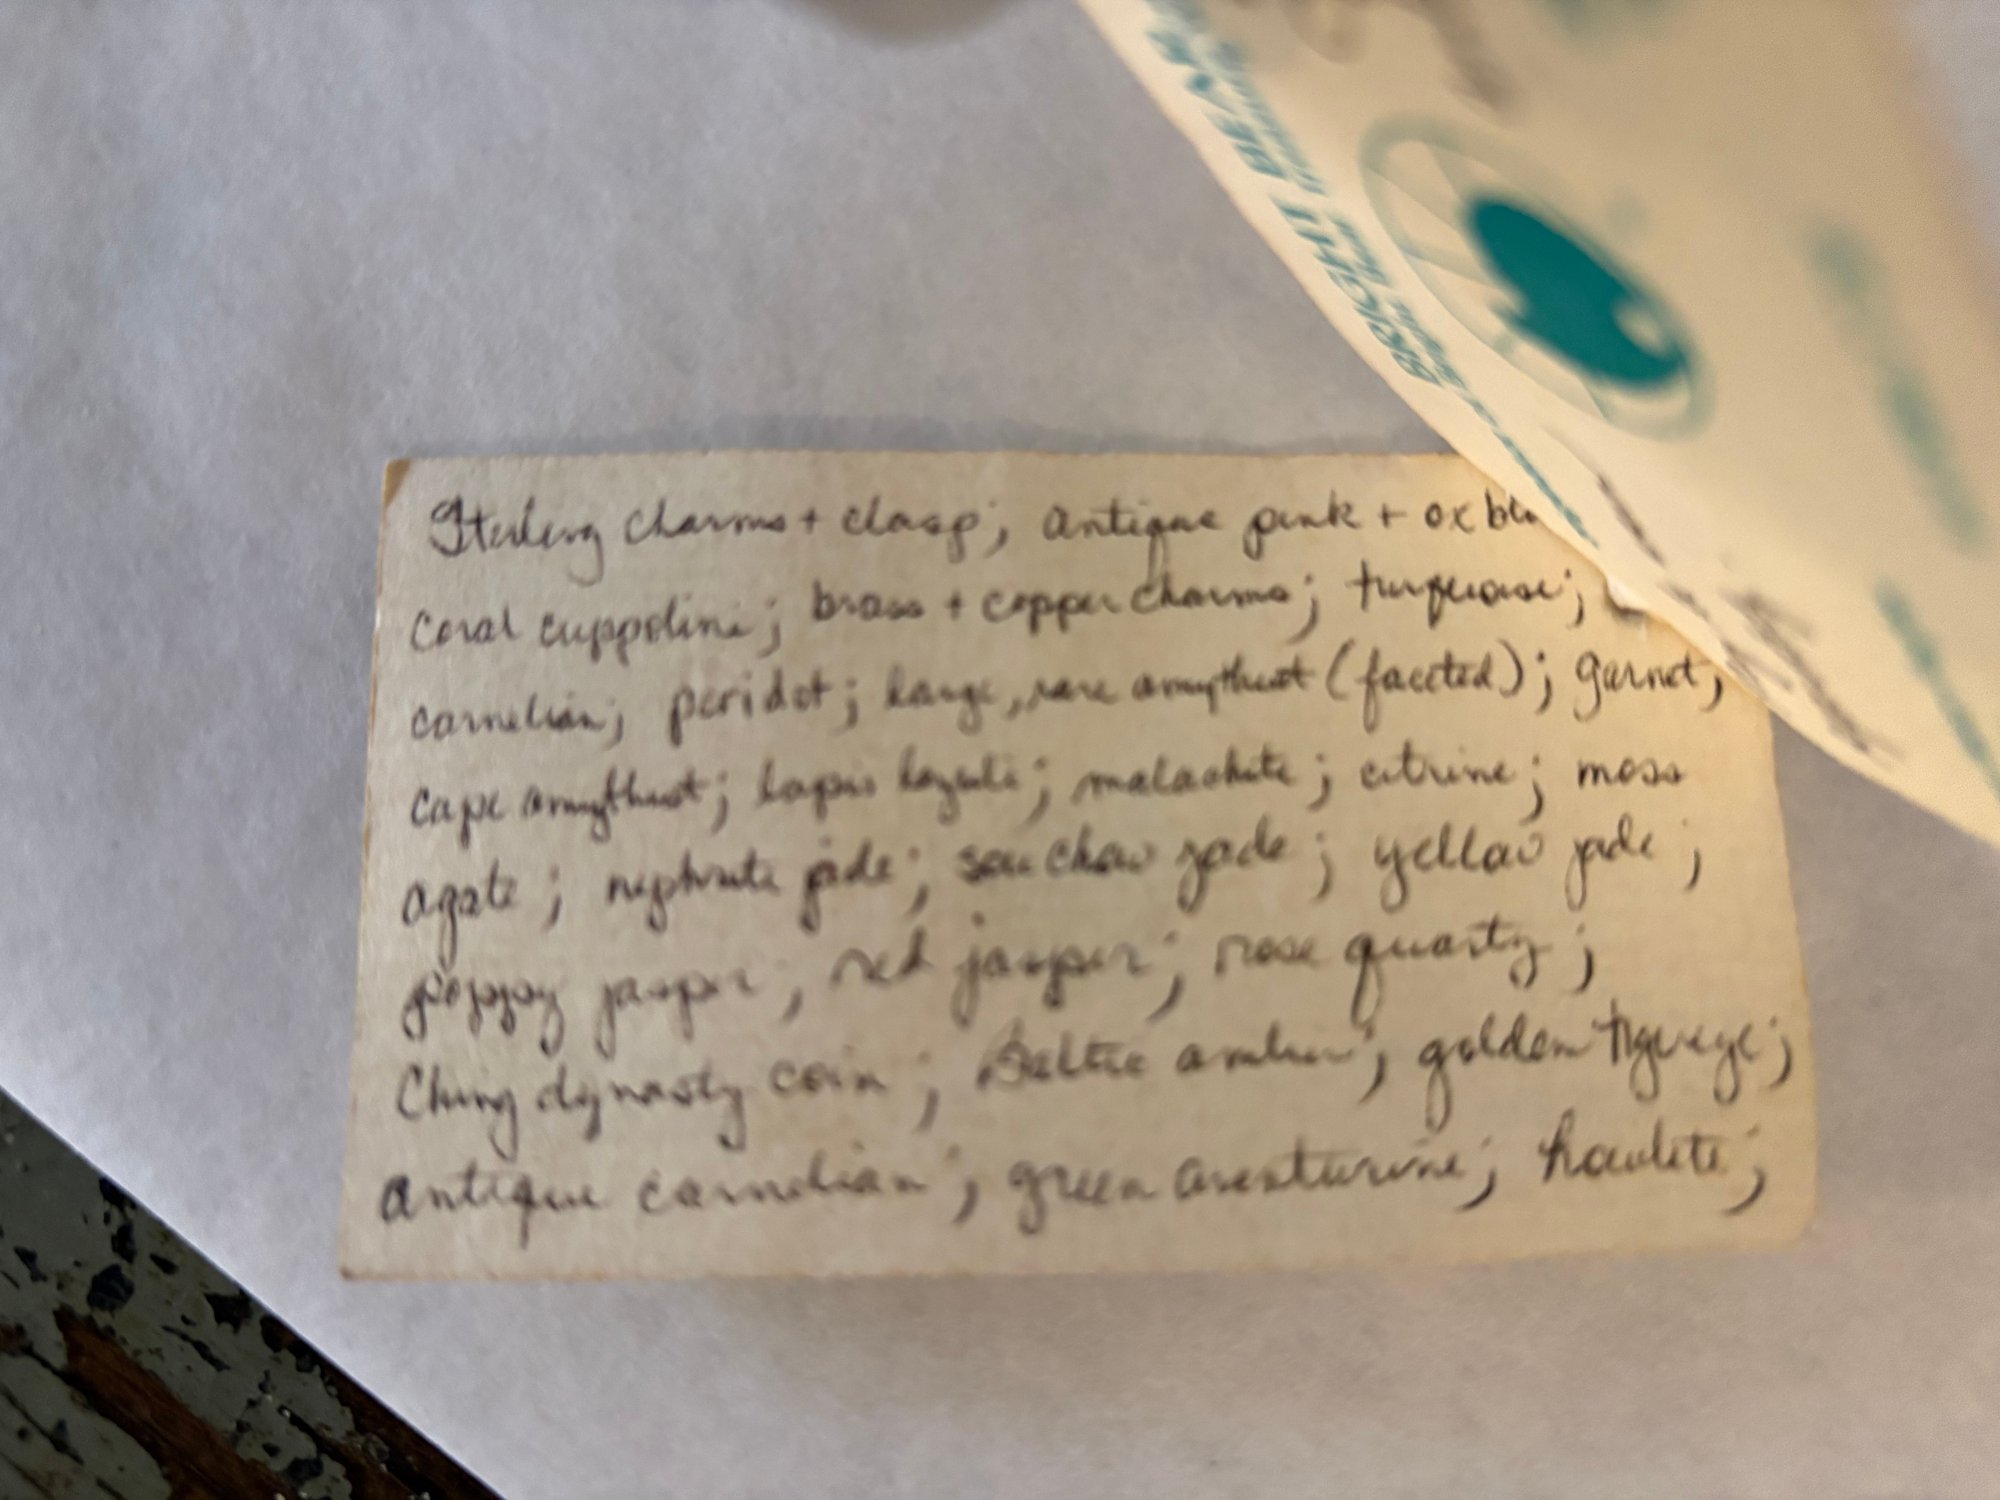 BEAD
Sterling charms + clasp; antique pink + ox blo
coral cuppolini; brass + copper charms; turquoise;
carnelian; peridot; large, rare amythest (faceted); garnet,
cape amythest; lapis lazuli; malachite; citrine; moss
agate; nephrite jade; sou chow jade; yellow jade;
poppy jasper, red jasper; rose quartz;
Ching dynasty coin; Baltic amber; golden tigereye;
antique carnelian; green aventurine; howlite;